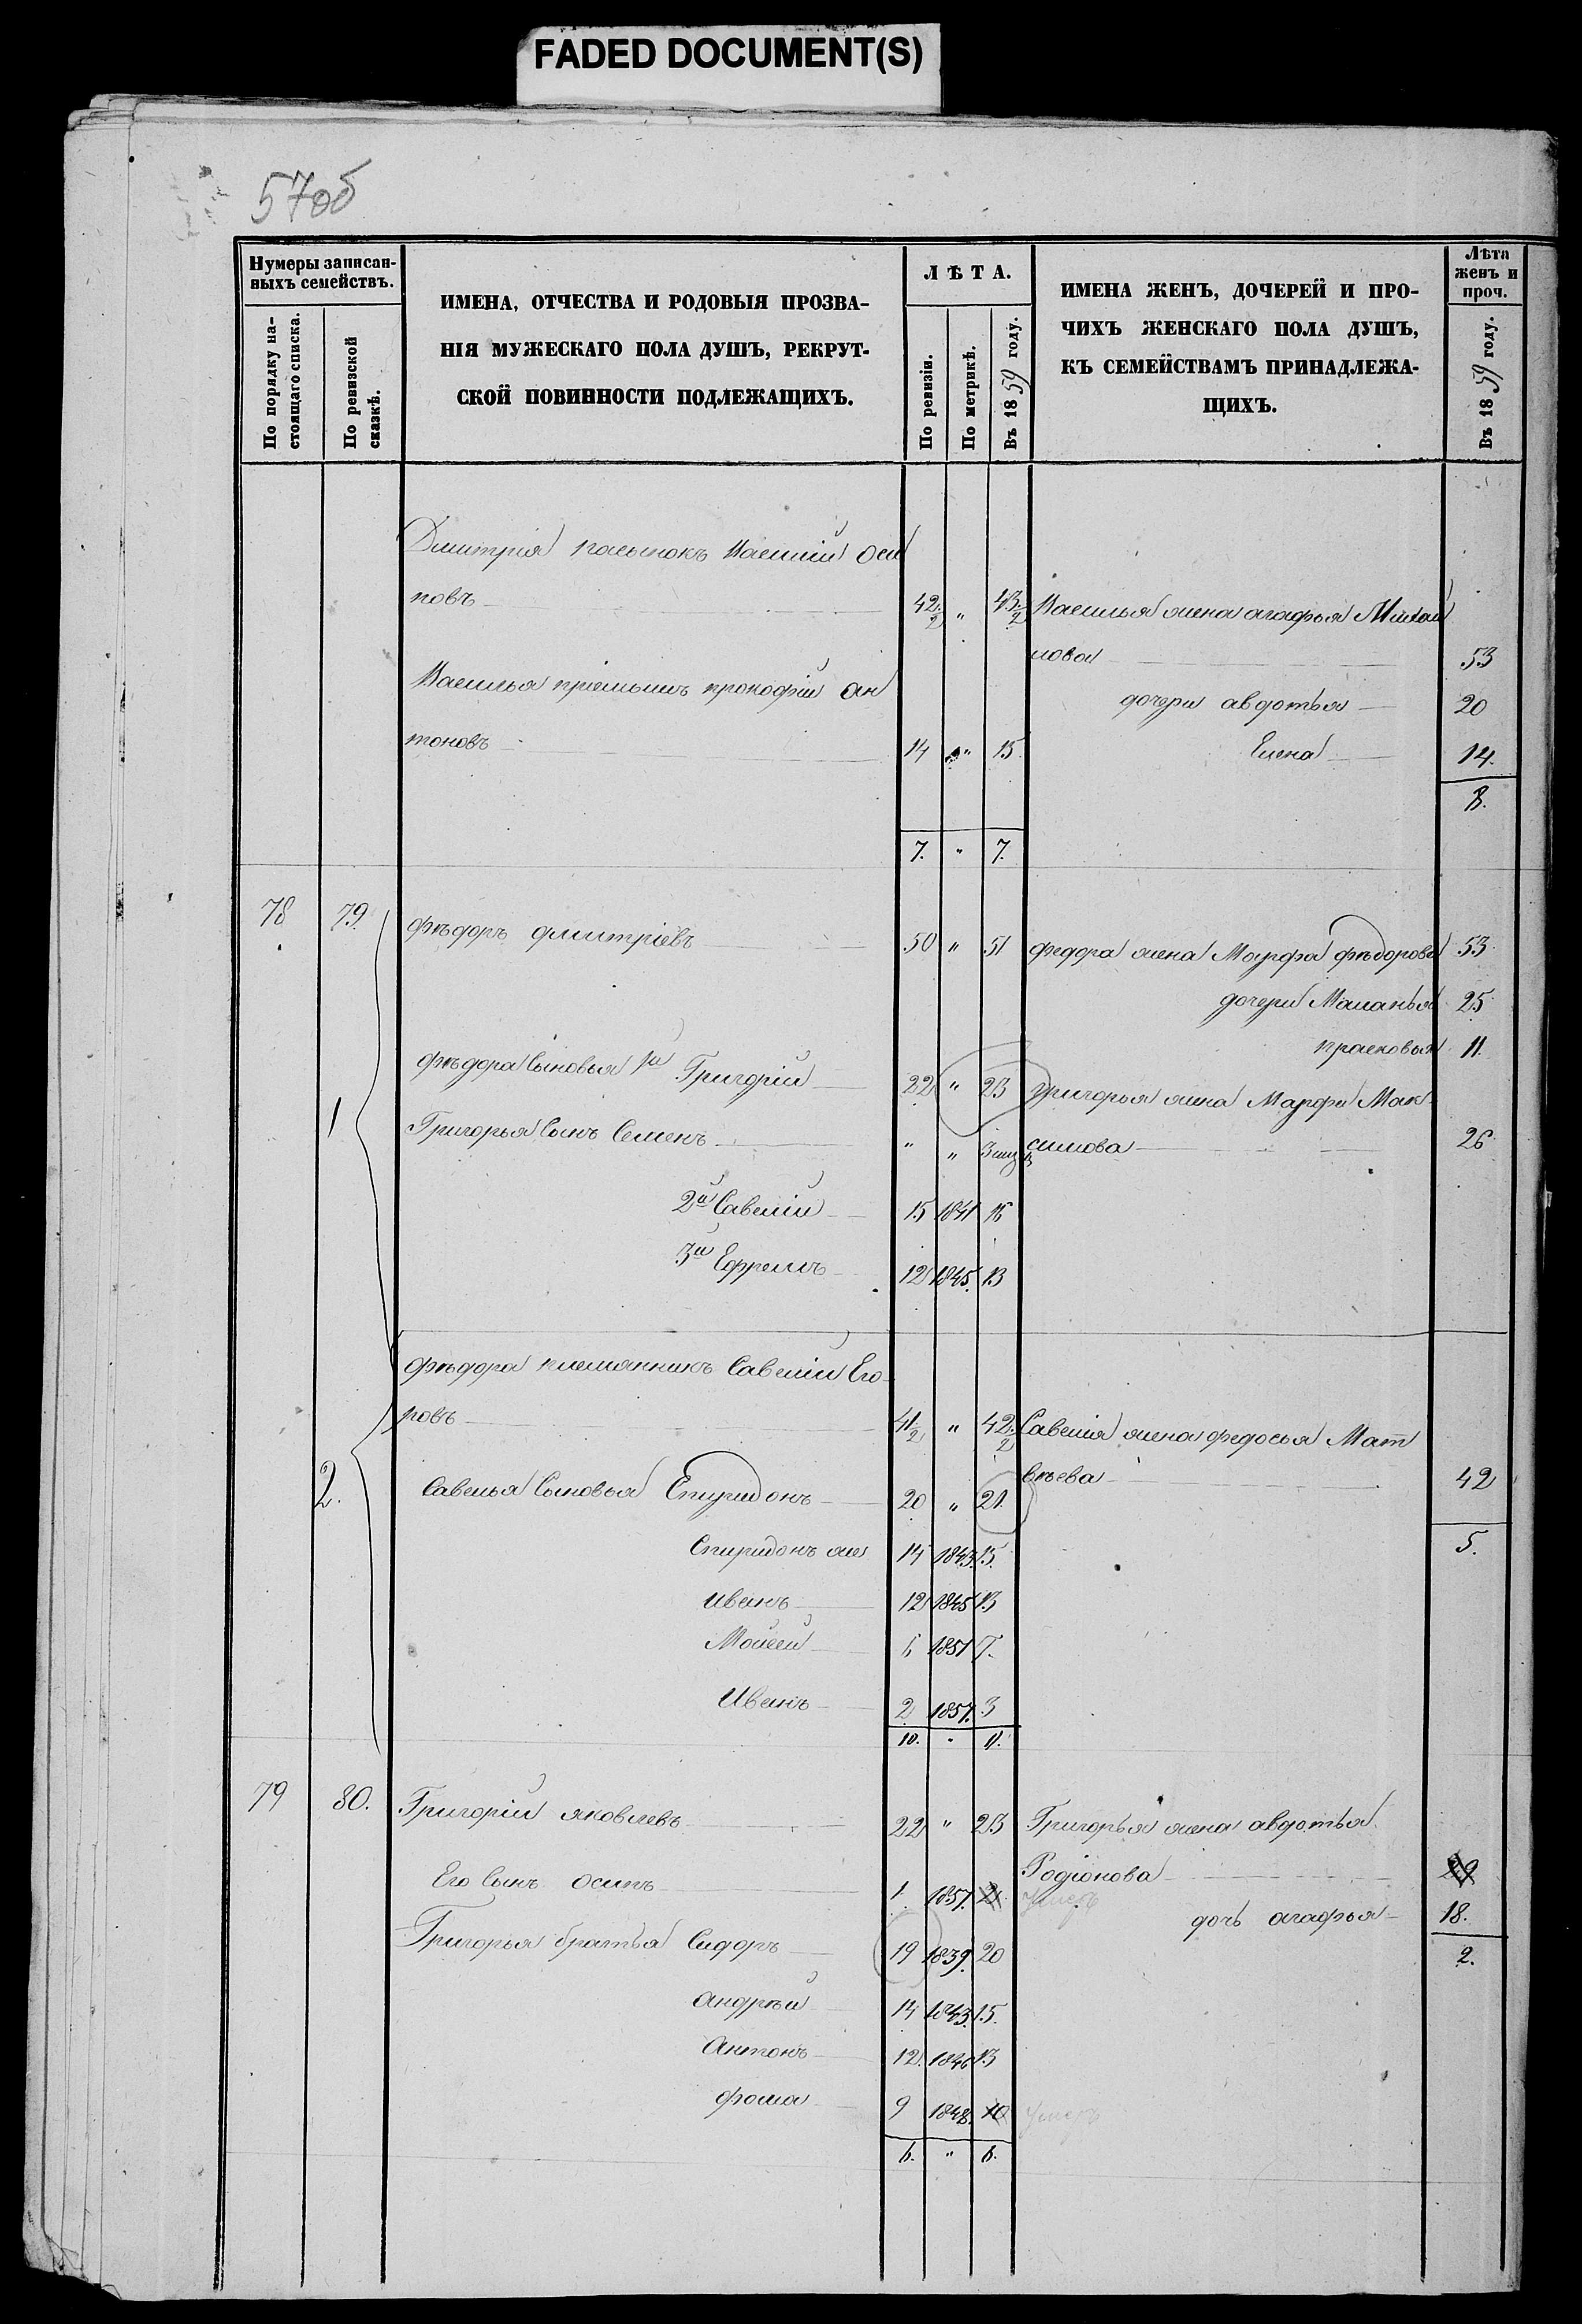 FADED DOCUMENT(S)
57об
Нумеры записан-
ныхъ семействъ.
По порядку на-
стоящаго списка.
По ревизской
сказкѣ.
ИМЕНА, ОТЧЕСТВА И РОДОВЫЯ ПРОЗВА-
НІЯ МУЖЕСКАГО ПОЛА ДУШЪ, РЕКРУТ-
СКОЙ ПОВИННОСТИ ПОДЛЕЖАЩИХЪ.
ЛѢТА.
По ревизіи.
По метрикѣ.
Въ 1859 году.
ИМЕНА ЖЕНЪ, ДОЧЕРЕЙ И ПРО-
ЧИХЪ ЖЕНСКАГО ПОЛА ДУШЪ,
КЪ СЕМЕЙСТВАМЪ ПРИНАДЛЕЖА-
ЩИХЪ.
Лѣта
женъ и
проч.
Въ 1859 году.
Дмитрія пасынокъ Василій Оси
повъ 42/2 " 43/2 Василья жена агафья Михай
лова 53
Василья пріемышъ прокофій Ан
дочери авдотья 20
тоновъ 14 " 15 Елена 14.
8.
7. " 7.
78 79 Фѣдоръ дмитріевъ 50 " 51 Федора жена Марфа фѣдорова 53
дочери Маланья 25
прасковья 11.
Фѣдора Сыновья 1й Григорій 22 " 23 Григорья жена Марфа Мак
1 Григорья Сынъ Семенъ " " 3 симова 26
2й Савелій 15 1841 16
3й Ефремъ 12 1845. 13
Фѣдора племянникъ Савелій Его
ровъ 41/2 " 42/2 Савелія жена федосья Мат
вѣева 42
2. Савелья Сыновья Спиридонъ 20 " 21.
5.
Спиридонъ 14 1843. 15.
иванъ 12 1845 13
Мойсей 6 1851 7.
Иванъ 2 1857. 3
10. " 11.
79 80. Григорій яковлевъ 22 " 23 Григорья жена авдотья
Родіонова 29
Его Сынъ осипъ 1 1857. 2 Умеръ
дочь агафья 18.
Григорья братья Сидоръ 19 1839. 20
2.
андрѣй 14 1843. 15.
Антонъ 12. 1846 13
фома 9 1848. 10 Умеръ
6. " 6.